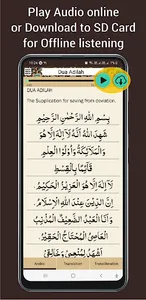 Play Audio online
or Download to SD Card
for Offline listening
Dua Adilah
DUA ADILAH
The Supplication for saving from deviation.
بِسْمِ اللَّهِ الرَّحْمَنِ الرَّحِيمِ
شَهِدَ اللَّهُ أَنَّهُ لَا إِلَهَ إِلَّا هُوَ
وَالْمَلَائِكَةُ وَأُولُو الْعِلْمِ
قَائِمًا بِالْقِسْطِ
لَا إِلَهَ إِلَّا هُوَ الْعَزِيزُ الْحَكِيمُ
إِنَّ الدِّينَ عِنْدَ اللَّهِ الْإِسْلَامُ
وَأَنَا الْعَبْدُ الضَّعِيفُ الْمُذْنِبُ
الْعَاصِي الْمُحْتَاجُ الْحَقِيرُ
أَشْهَدُ لِمُنْعِمِي وَخَالِقِي
Arabic Translation Transliteration